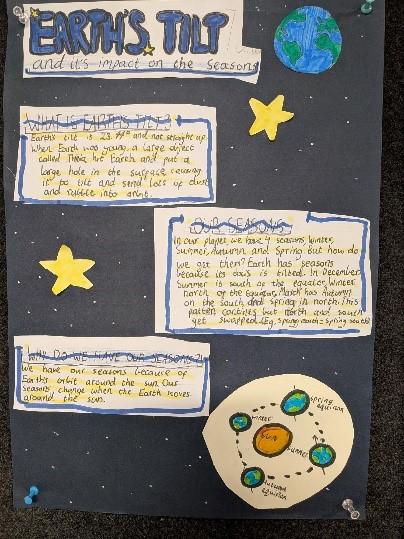 EARTH'S TILT
and it's impact on the seasons
WHAT IS EARTH'S TILT?
Earth's tilt is 23.44° and not straight up
when Earth was young, a large object
called Theia hit Earth and put a
large hole in the surface causing
it to tilt and send lots up dust
and rubble into orbit.
OUR SEASONS
In our planet we have 4 seasons, Winter,
Summer, Autumn and Spring but how do
we get them? Earth has seasons
because its axis is tilted. In December
Summer is south of the equator, Winter
north of the equator. March has Autumn
on the south and spring in north. This
pattern contines but north and south
get swapped (Eg. Spring north = Spring south)
WHY DO WE HAVE OUR SEASONS?
We have our seasons because of
Earth's orbit around the sun. Our
seasons change when the Earth moves
around the sun.
spring
equinox
winter
Sun
Summer
autumn
equinox